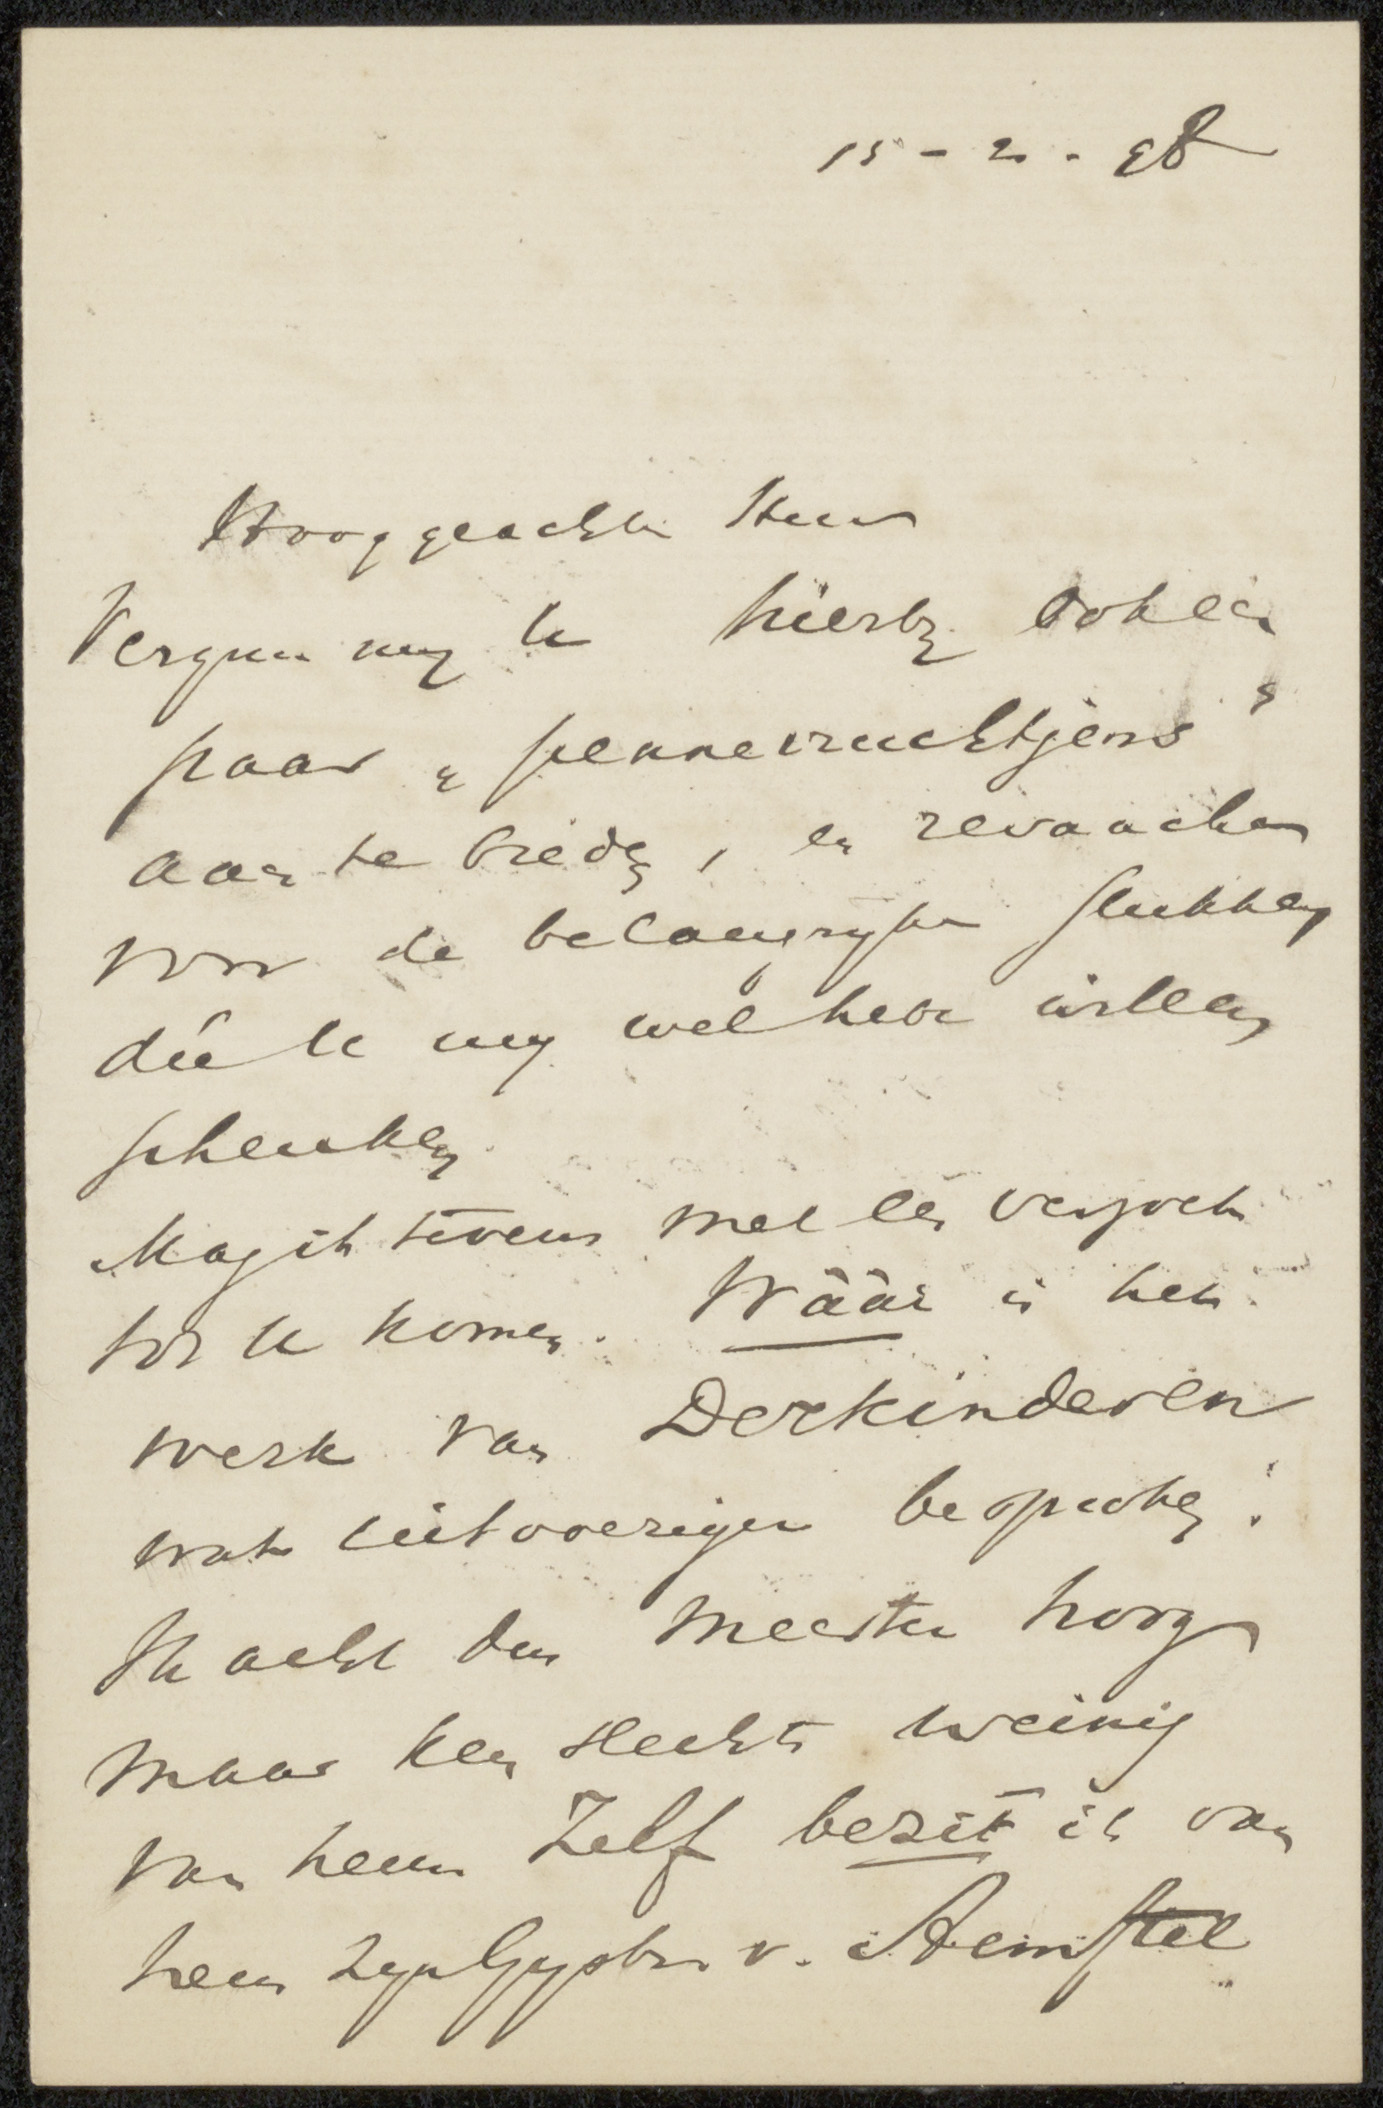 15 - 2 - 98
Hooggeachte Heer
Vergun my U hierby ook een
paar „pennevruchtjens"
aan te bieden, en revanche
voor de belangryke stukken
die U my wel hebt willen
schenken.
Mag ik tevens met een verzoek
tot U komen. Wáár is het
werk van Derkinderen
wat uitvoeriger besproken?
Ik acht den Meester hoog
maar ken slechts weinig
van hem Zelf bezit ik van
hem zyn Gysbr. v. Aemstel